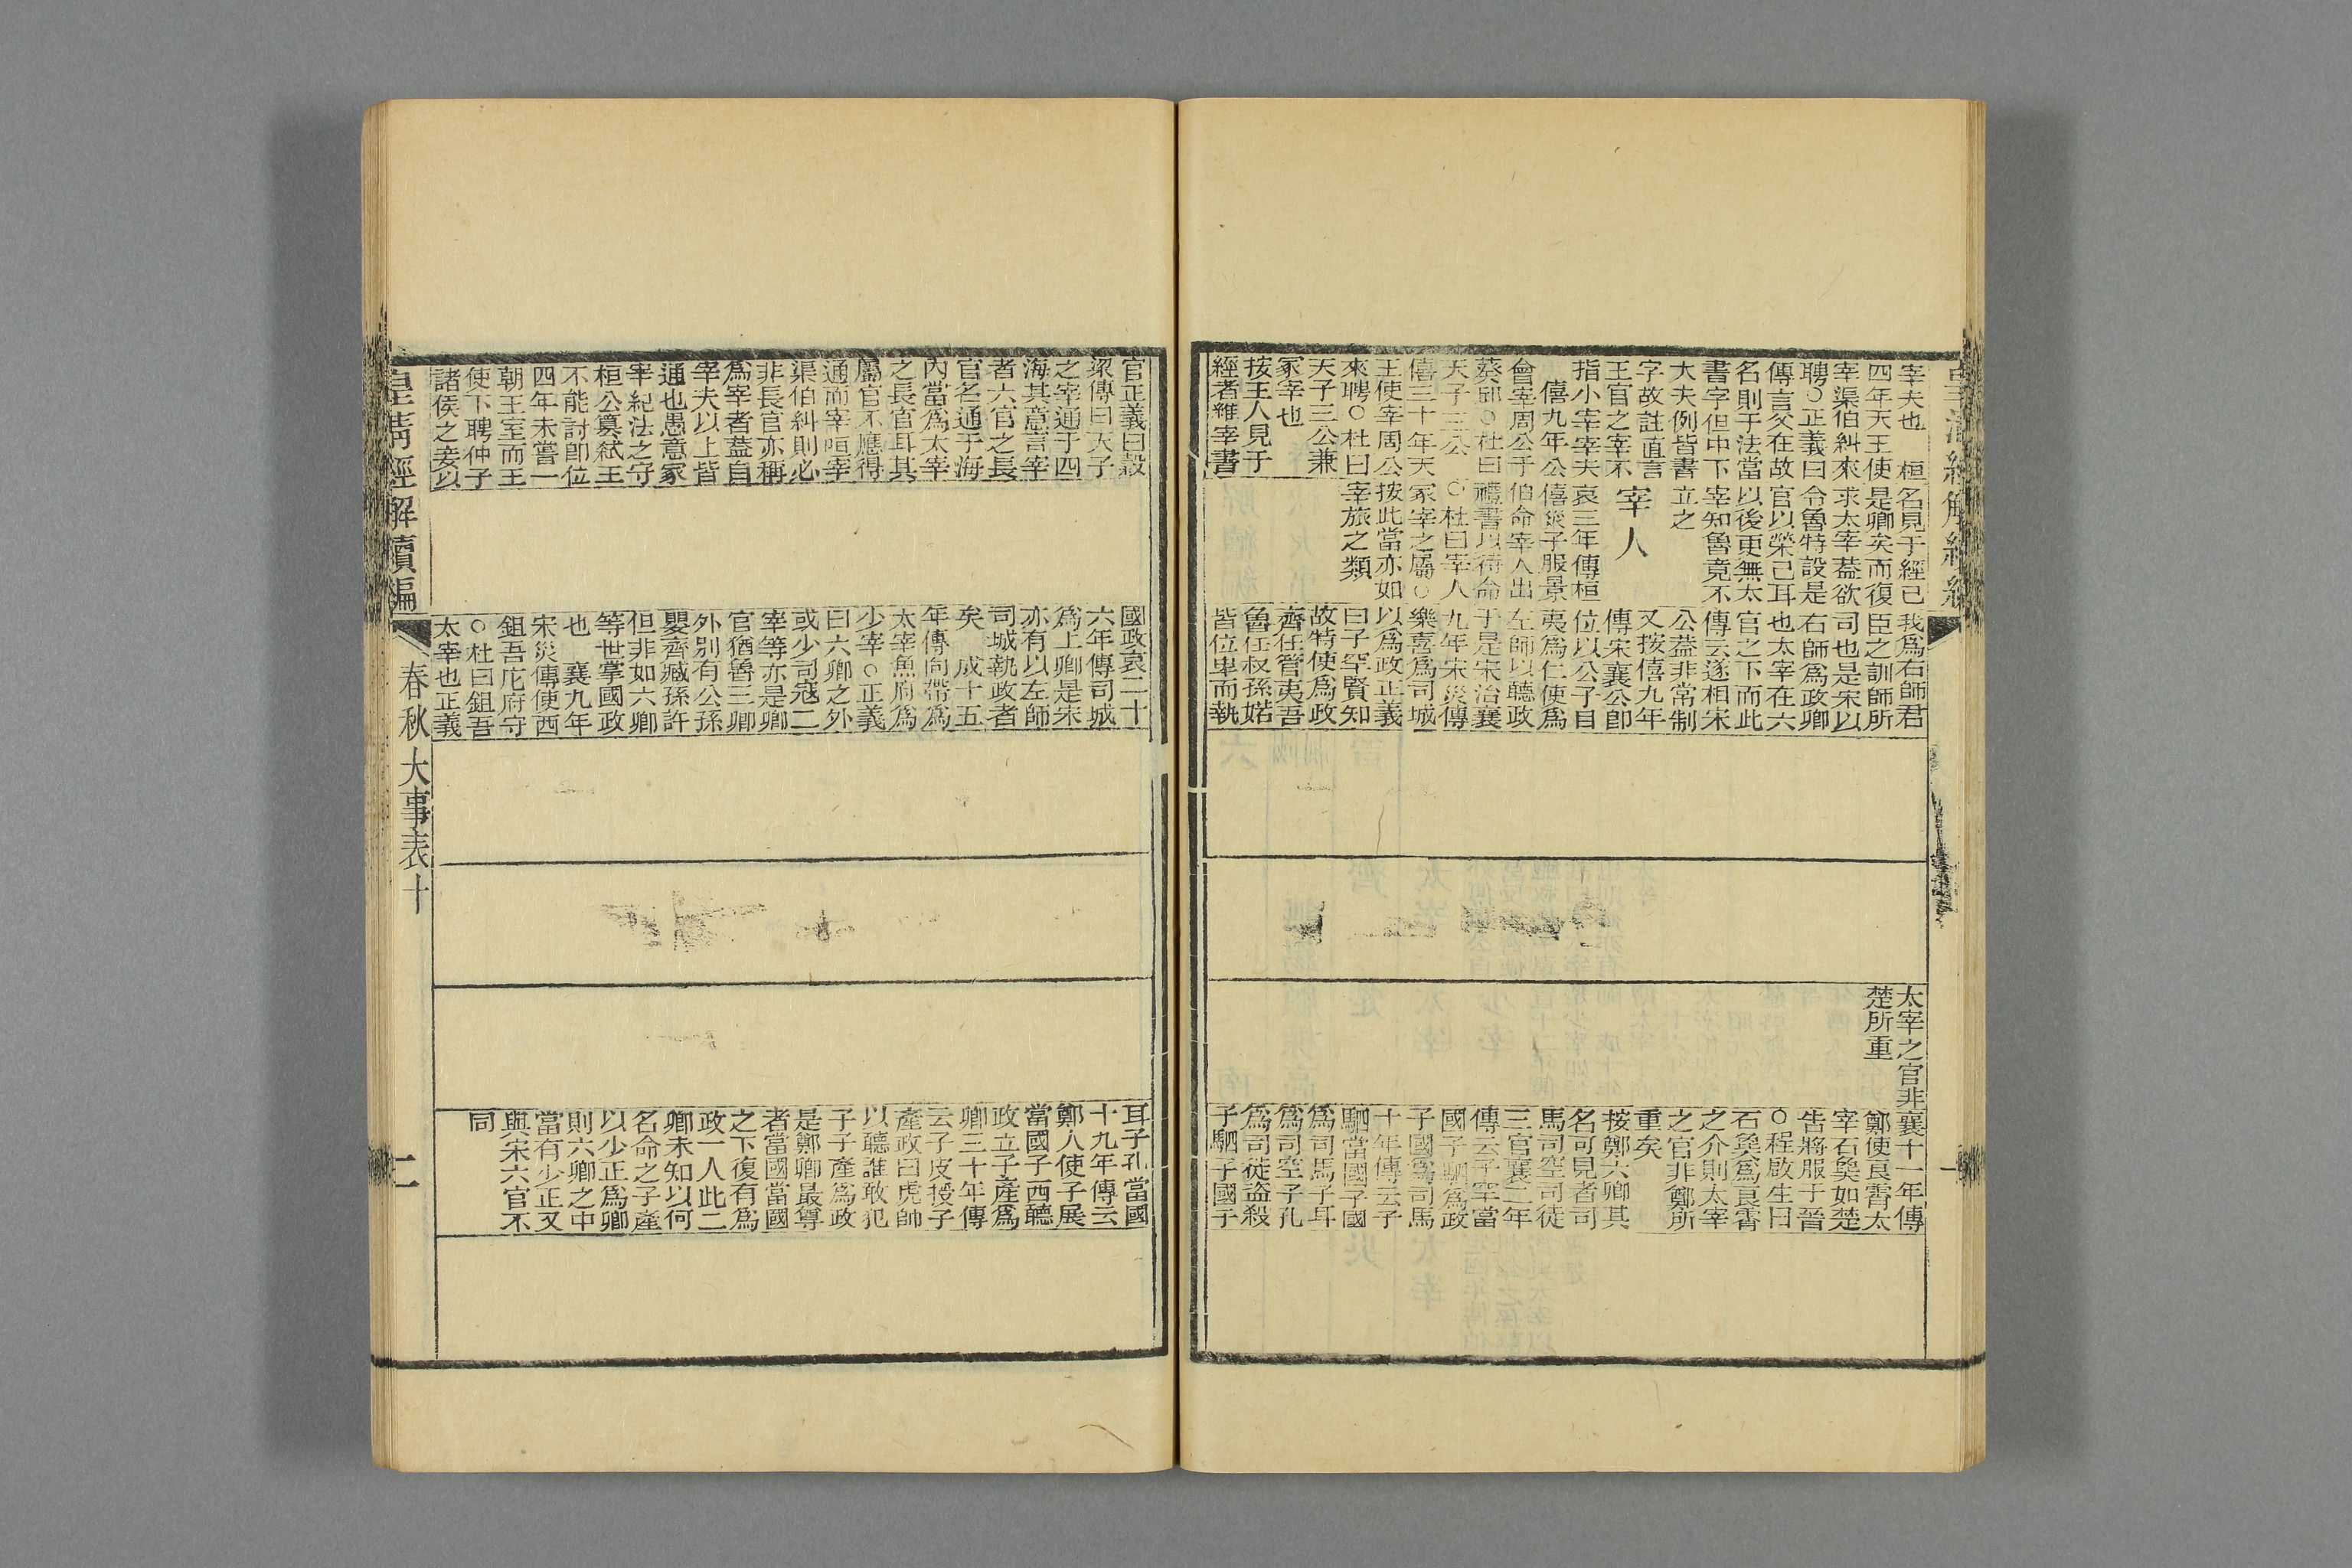 宰夫也　桓
四年天王使
宰渠伯糾來
聘○正義曰
傳言父在故
名則于法當
書字但中下
大夫例皆書
字故註直言
王官之宰不
指小宰宰夫
僖九年公
會宰周公于
葵邱○杜曰
天子三公
僖三十年天
王使宰周公
來聘○杜曰
天子三公兼
冢宰也
按王人見于
經者維宰書
名見于經已
是卿矣而復
求太宰葢欲
令魯特設是
官以榮己耳
以後更無太
宰知魯竟不
立之
宰人
哀三年傳桓
僖災子服景
伯命宰人出
禮書以待命
○杜曰宰人
冢宰之屬○
按此當亦如
宰旅之類
我爲右師君
臣之訓師所
司也是宋以
右師爲政卿
也太宰在六
官之下而此
傳云遂相宋
公葢非常制
又按僖九年
傳宋襄公卽
位以公子目
夷爲仁使爲
左師以聽政
于是宋治襄
九年宋災傳
樂喜爲司城
以爲政正義
曰子罕賢知
故特使爲政
齊任管夷吾
魯任叔孫婼
皆位卑而執
太宰之官非
楚所重
襄十一年傳
鄭使良霄太
宰石㚟如楚
告將服于晉
○程啟生曰
石㚟爲良霄
之介則太宰
之官非鄭所
重矣
按鄭六卿其
名可見者司
馬司空司徒
三官襄二年
傳云子罕當
國子駟爲政
子國爲司馬
十年傳云子
駟當國子國
爲司馬子耳
爲司空子孔
爲司徒盜殺
子駟子國子
官正義曰穀
梁傳曰天子
之宰通于四
海其意言宰
者六官之長
官名通于海
內當爲太宰
之長官耳其
屬官不應得
通而宰咺宰
渠伯糾則必
非長官亦稱
爲宰者葢自
宰夫以上皆
通也愚意冢
宰紀法之守
桓公簒弒王
不能討卽位
四年未嘗一
朝王室而王
使下聘仲子
諸侯之妾以
國政哀二十
六年傳司城
爲上卿是宋
亦有以左師
司城執政者
矣　成十五
年傳向帶爲
太宰魚府爲
少宰○正義
曰六卿之外
或少司寇二
宰等亦是卿
官猶魯三卿
外別有公孫
嬰齊臧孫許
但非如六卿
等世掌國政
也　襄九年
宋災傳使西
鉏吾庀府守
○杜曰鉏吾
太宰也正義
耳子孔當國
十九年傳云
鄭人使子展
當國子西聽
政立子產爲
卿三十年傳
云子皮授子
產政曰虎帥
以聽誰敢犯
子子產爲政
是鄭卿最尊
者當國當國
之下復有爲
政一人此二
卿未知以何
名命之子產
以少正爲卿
則六卿之中
當有少正又
與宋六官不
同
皇清經解續編
春秋大事表十
二